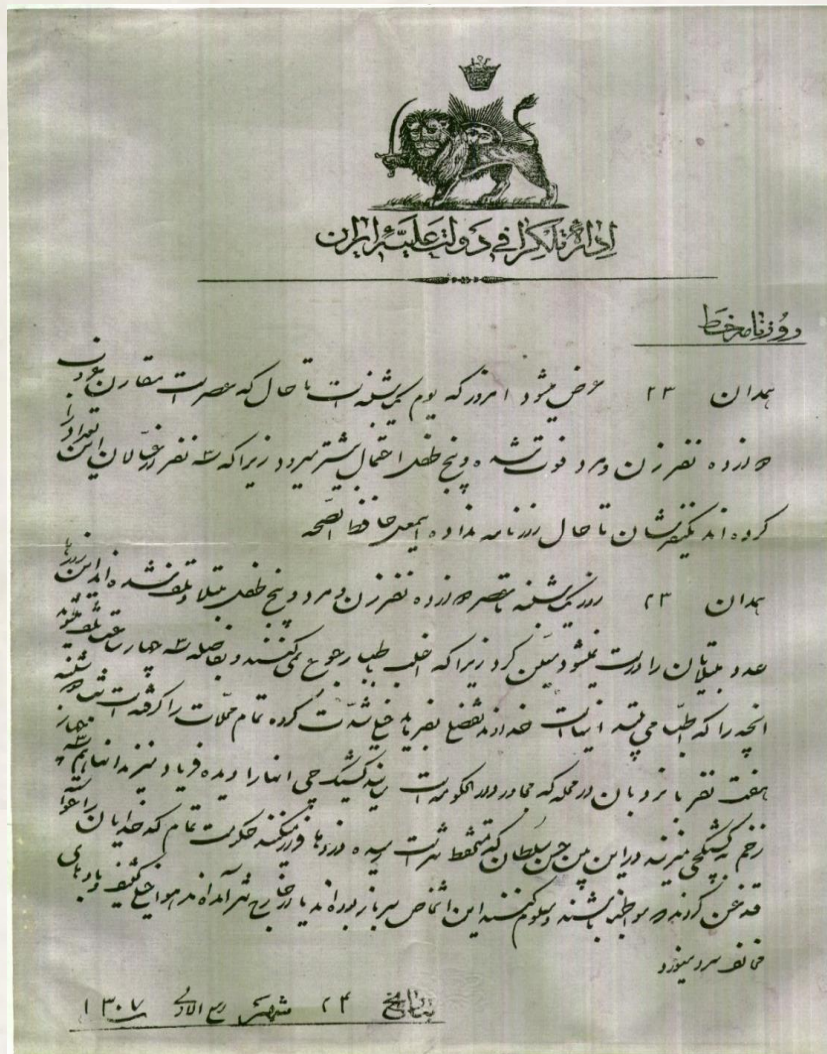 ادارهٔ تلگرافی دولت علیّهٔ ایران
روزنامه خط
همدان ۲۳ عرض میشود امروز که یوم یکشنبه است تا حال که عصر است مقارن غروب
دوازده نفر زن و مرد فوت شده و پنج طفل احتمال بیشتر میرود زیرا که سه نفر از غسالان این تعداد را
کرده‌اند یکنفرشان تا حال روزنامه نداده اسمعیل حافظ الصحه
همدان ۲۳ روز یکشنبه تا عصر دوازده نفر زن و مرد و پنج طفل مبتلا و تلف شده‌اند این روزها
عدد مبتلایان را درست نمیشود معین کرد زیرا که اغلب بطبیب رجوع نمی‌کنند و بفاصله سه چهار ساعت تلف میشوند
آنچه را که اطبا می‌بینند اینها است خداوند تفضل بفرماید خیلی شدت کرده تمام محلات را گرفته است شب دوشنبه
هفت نفر با نردبان در محله که مجاور دارالحکومه است کشیکچی اینها را دیده فریاد میزند اینها هم سه چهار
زخم به کشیکچی میزنند در این بین حسن سلطان که مستحفظ شهر است رسیده دزدها فرار میکنند حکومت تمام کدخدایان را
قدغن کردند که مواظب باشند و معلوم کنند این اشخاص سرباز بوده‌اند یا از خارج شهر آمده‌اند هوا خیلی کثیف و بادهای
مخالف سرد میوزد
بتاریخ ۲۴ شهر ربیع الاول سنه ۱۳۰۷